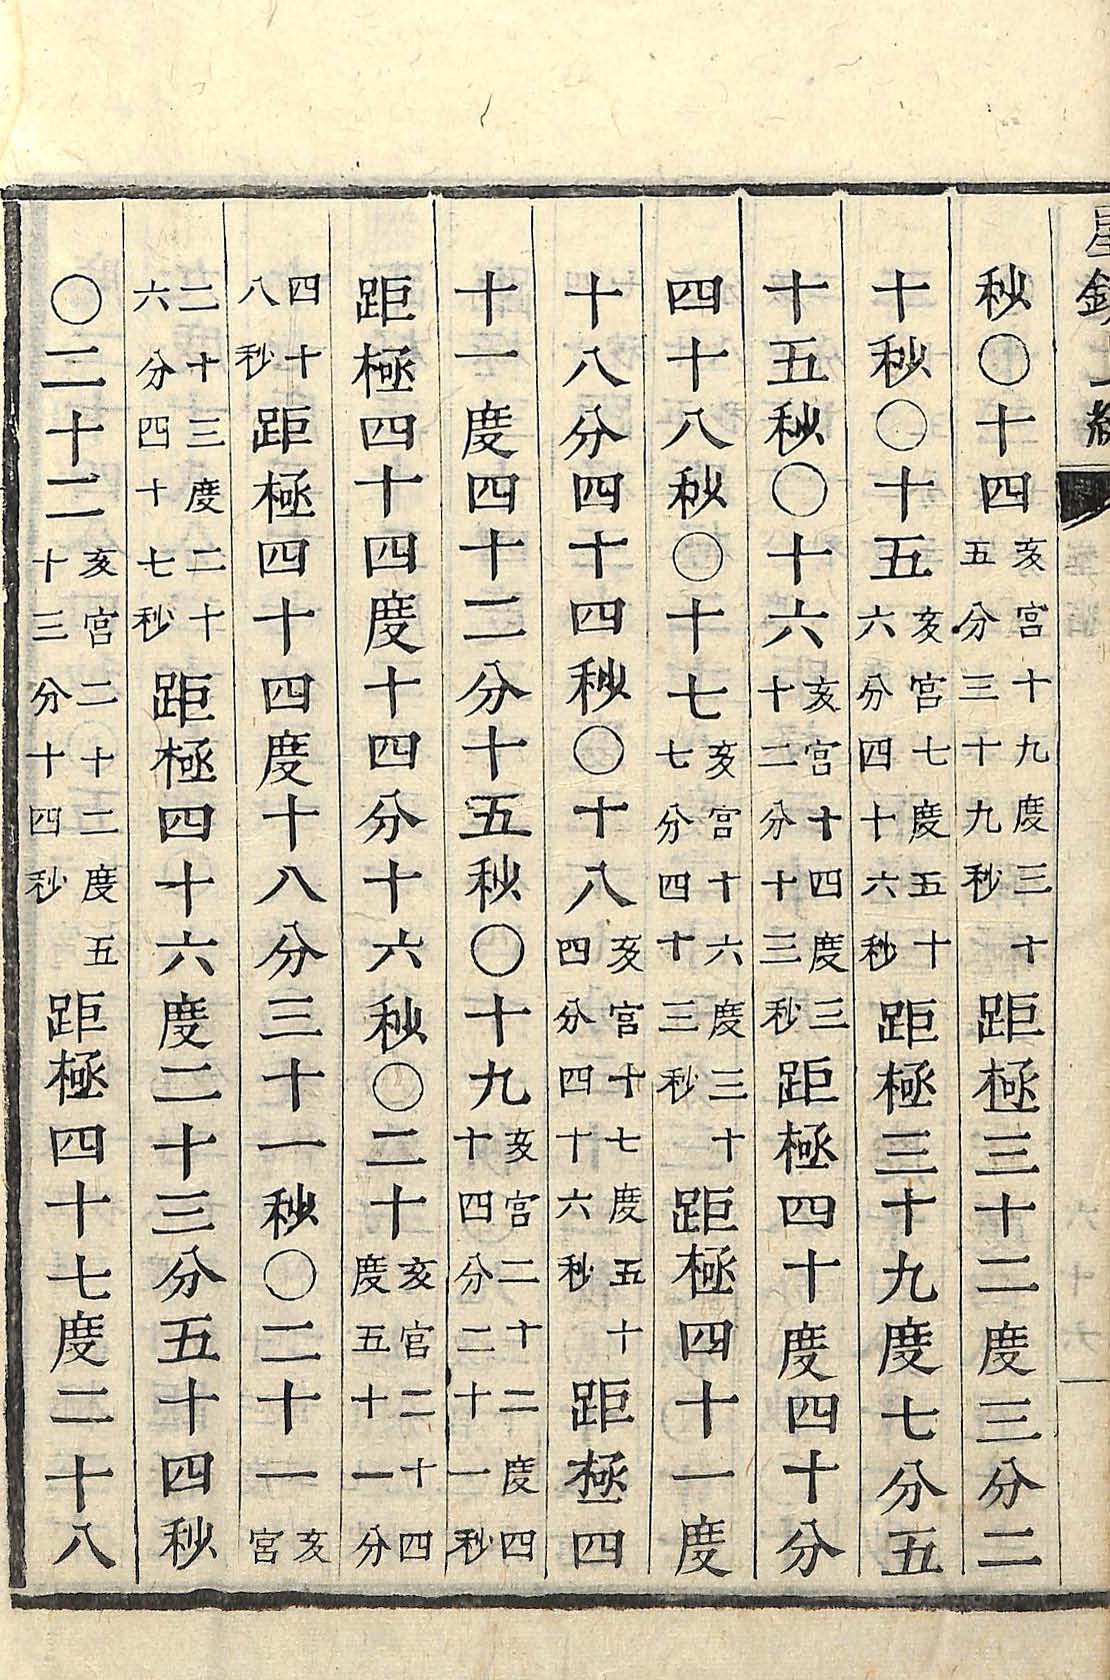 秒〇十四亥宮十九度三十五分三十九秒距極三十二度三分二
十秒〇十五亥宮七度五十六分四十六秒距極三十九度七分五
十五秒〇十六亥宮十四度三十二分十三秒距極四十度四十分
四十八秒〇十七亥宮十六度三十七分四十三秒距極四十一度
十八分四十四秒〇十八亥宮十七度五十四分四十六秒距極四
十一度四十二分十五秒〇十九亥宮二十二度四十四分二十一秒
距極四十四度十四分十六秒〇二十亥宮二十四度五十一分
四十八秒距極四十四度十八分三十一秒〇二十一亥宮
二十三度二十六分四十七秒距極四十六度二十三分五十四秒
〇二十二亥宮二十二度五十三分十四秒距極四十七度二十八